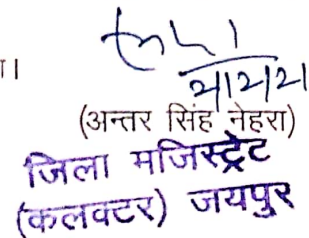 ा।
(अन्तर सिंह नेहरा)
जिला मजिस्ट्रेट
(कलक्टर) जयपुर